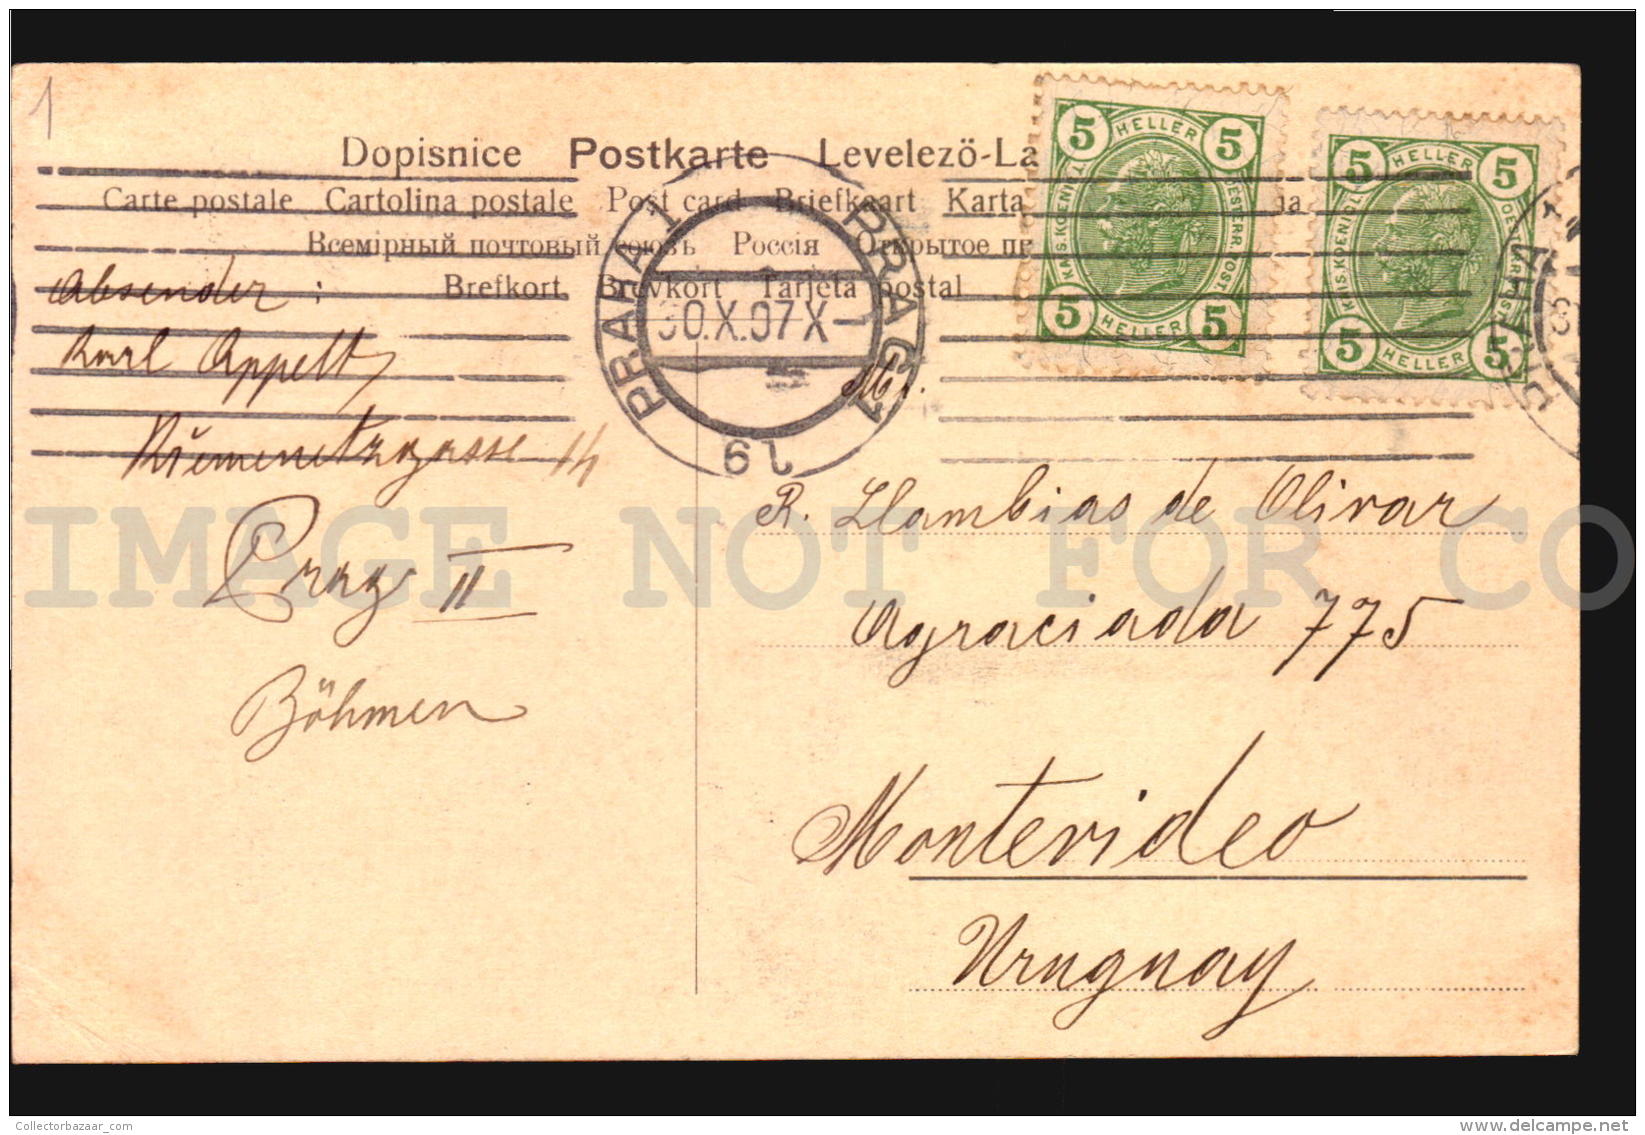 1
Dopisnice Postkarte Levelező-La
Carte postale Cartolina postale Post card Briefkaart Karta
Всемірный почтовый союзъ Россія Открытое пи
Brefkort Brevkort Tarjeta postal
5 HELLER 5
KAIS. KOENIGL. OESTERR. POST.
5 HELLER 5
5 HELLER 5
5 HELLER 5
PRAHA 1 PRAG 1
30.X.07 X-
19
PRAHA
Absender :
Karl Appelt
Prag II
Böhmen
Mr.
R. Llambias de Olivar
Agraciada 775
Montevideo
Uruguay
IMAGE NOT FOR CO
Collectorbazaar_com
www.delcampe.net